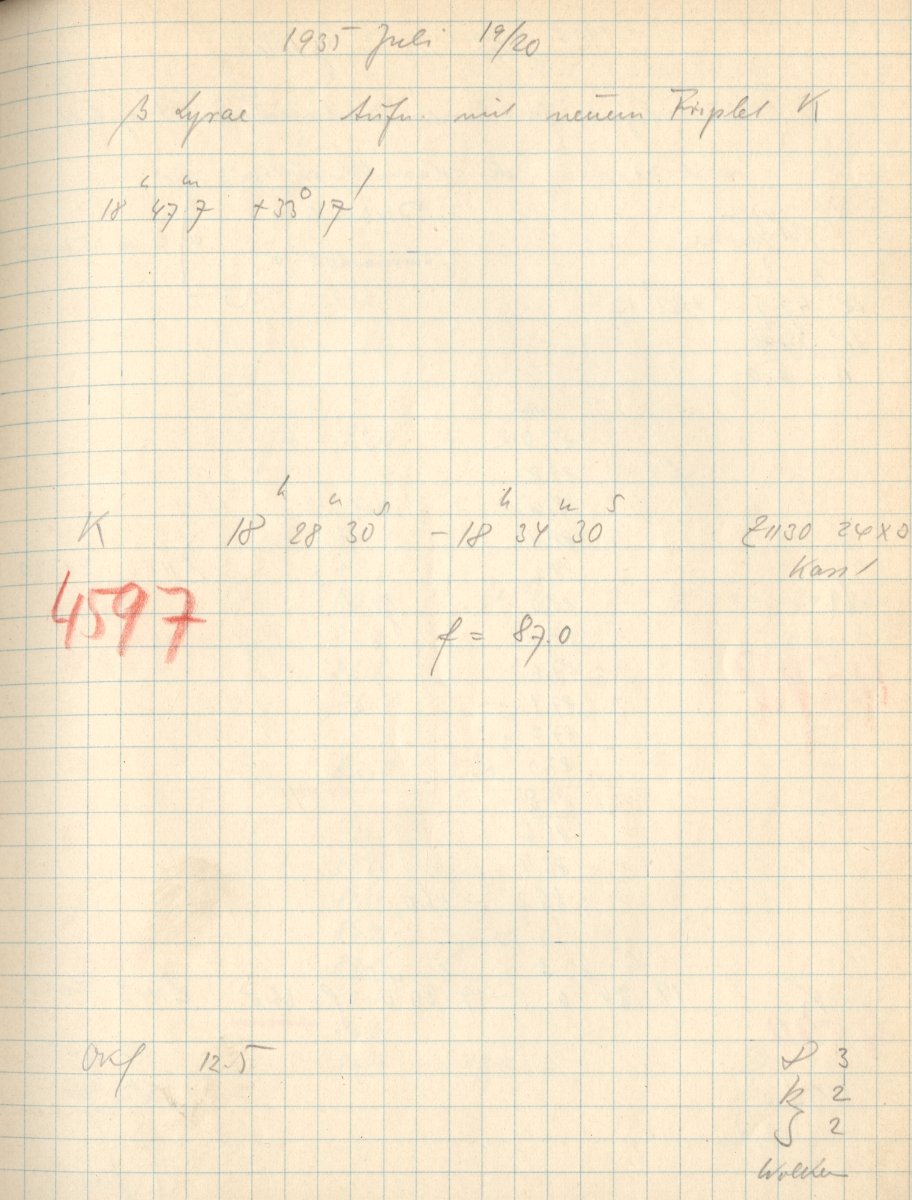 1935 Juli 19/20
β Lyrae Aufn. mit neuem Triplet K
18ʰ 47ᵐ7 +33° 17′
K 18ʰ 28ᵐ 30ˢ – 18ʰ 34ᵐ 30ˢ Z1130 24x
4597
f = 87.0
Okf 12.5
3
R 2
S 2
Wolken